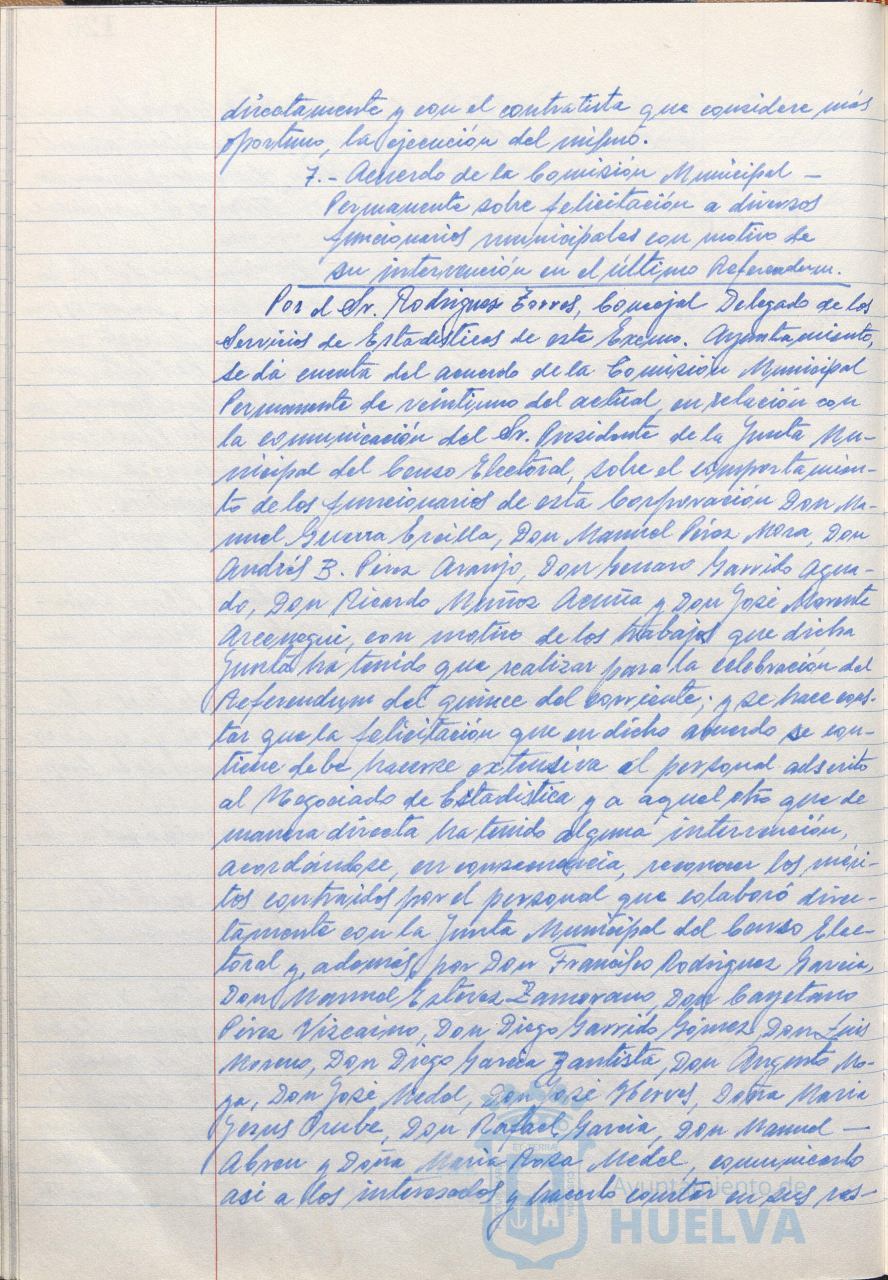 directamente y con el contratista que considere más
oportuno, la ejecución del mismo.
7.- Acuerdo de la Comisión Municipal —
Permanente sobre felicitación a diversos
funcionarios municipales con motivo de
su intervención en el último Referendum.
Por el Sr. Rodriguez Torres, Concejal Delegado de los
Servicios de Estadísticas de este Excmo. Ayuntamiento,
se dá cuenta del acuerdo de la Comisión Municipal
Permanente de veintiuno del actual, en relación con
la comunicación del Sr. Presidente de la Junta Mu-
nicipal del Censo Electoral, sobre el comportamien-
to de los funcionarios de esta Corporación Don Ma-
nuel Guerra Ercilla, Don Manuel Pérez Mora, Don
Andrés B. Pérez Araujo, Don Genaro Garrido Agua-
do, Don Ricardo Muñoz Acuña y Don José Morente
Arcenegui, con motivo de los trabajos que dicha
Junta ha tenido que realizar para la celebración del
Referendum del quince del corriente; y se hace cons-
tar que la felicitación que en dicho acuerdo se con-
tiene debe hacerse extensiva al personal adscrito
al Negociado de Estadística y a aquel otro que de
manera directa ha tenido alguna intervención,
acordándose, en consecuencia, reconocer los méri-
tos contraidos por el personal que colaboró direc-
tamente con la Junta Municipal del Censo Elec-
toral y, además, por Don Francisco Rodriguez Garcia,
Don Manuel Estevez Zamorano, Don Cayetano
Pérez Vizcaino, Don Diego Garrido Gómez, Don Luis
Moreno, Don Diego Garcia Bautista, Don Augusto Mo-
ya, Don José Medel, Don José Herves, Doña Maria
Jesus Orube, Don Rafael Garcia, Don Manuel —
Abreu y Doña Maria Rosa Medel, comunicarlo
asi a los interesados y hacerlo constar en sus res-
Ayuntamiento de
HUELVA